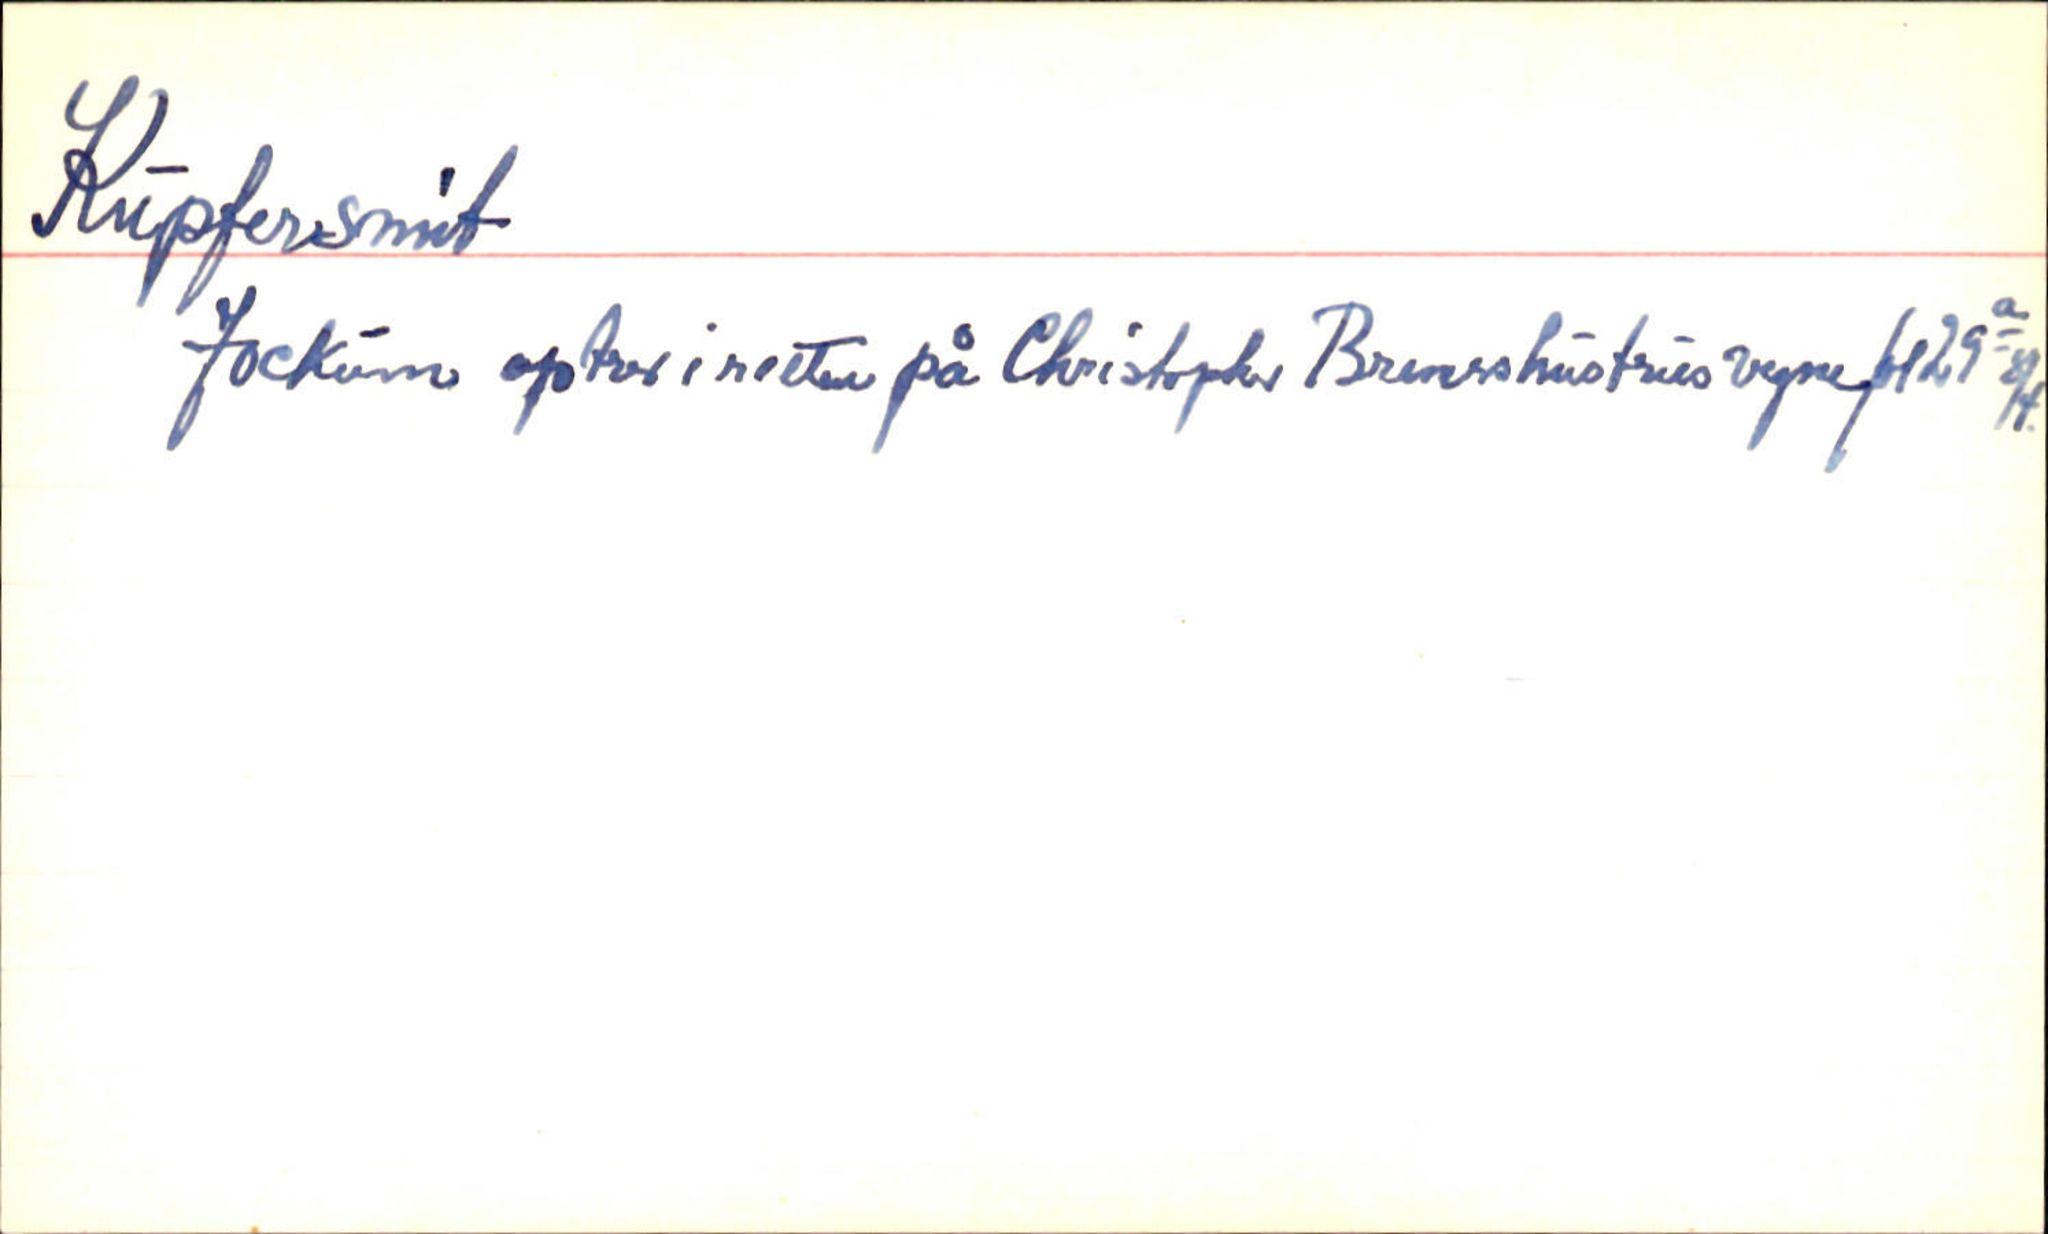 Kūpfersmit
Jockūm optrer i retten på Christopher Bremershūstrūs vegne bl 29 a